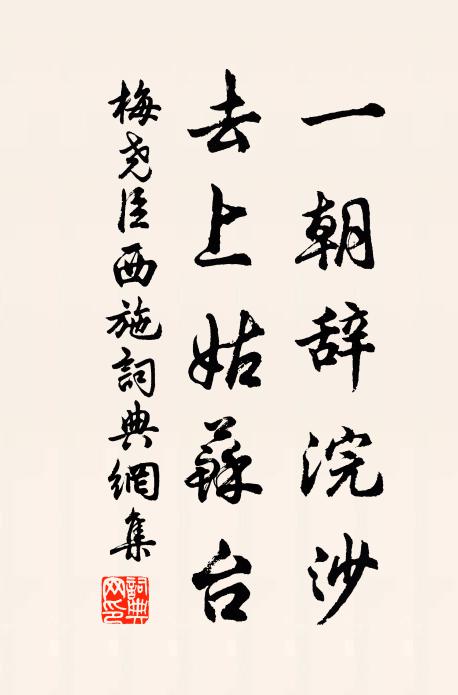 一朝辞浣沙
去上姑蘇台
梅尧臣西施詞典網集
詞典网印